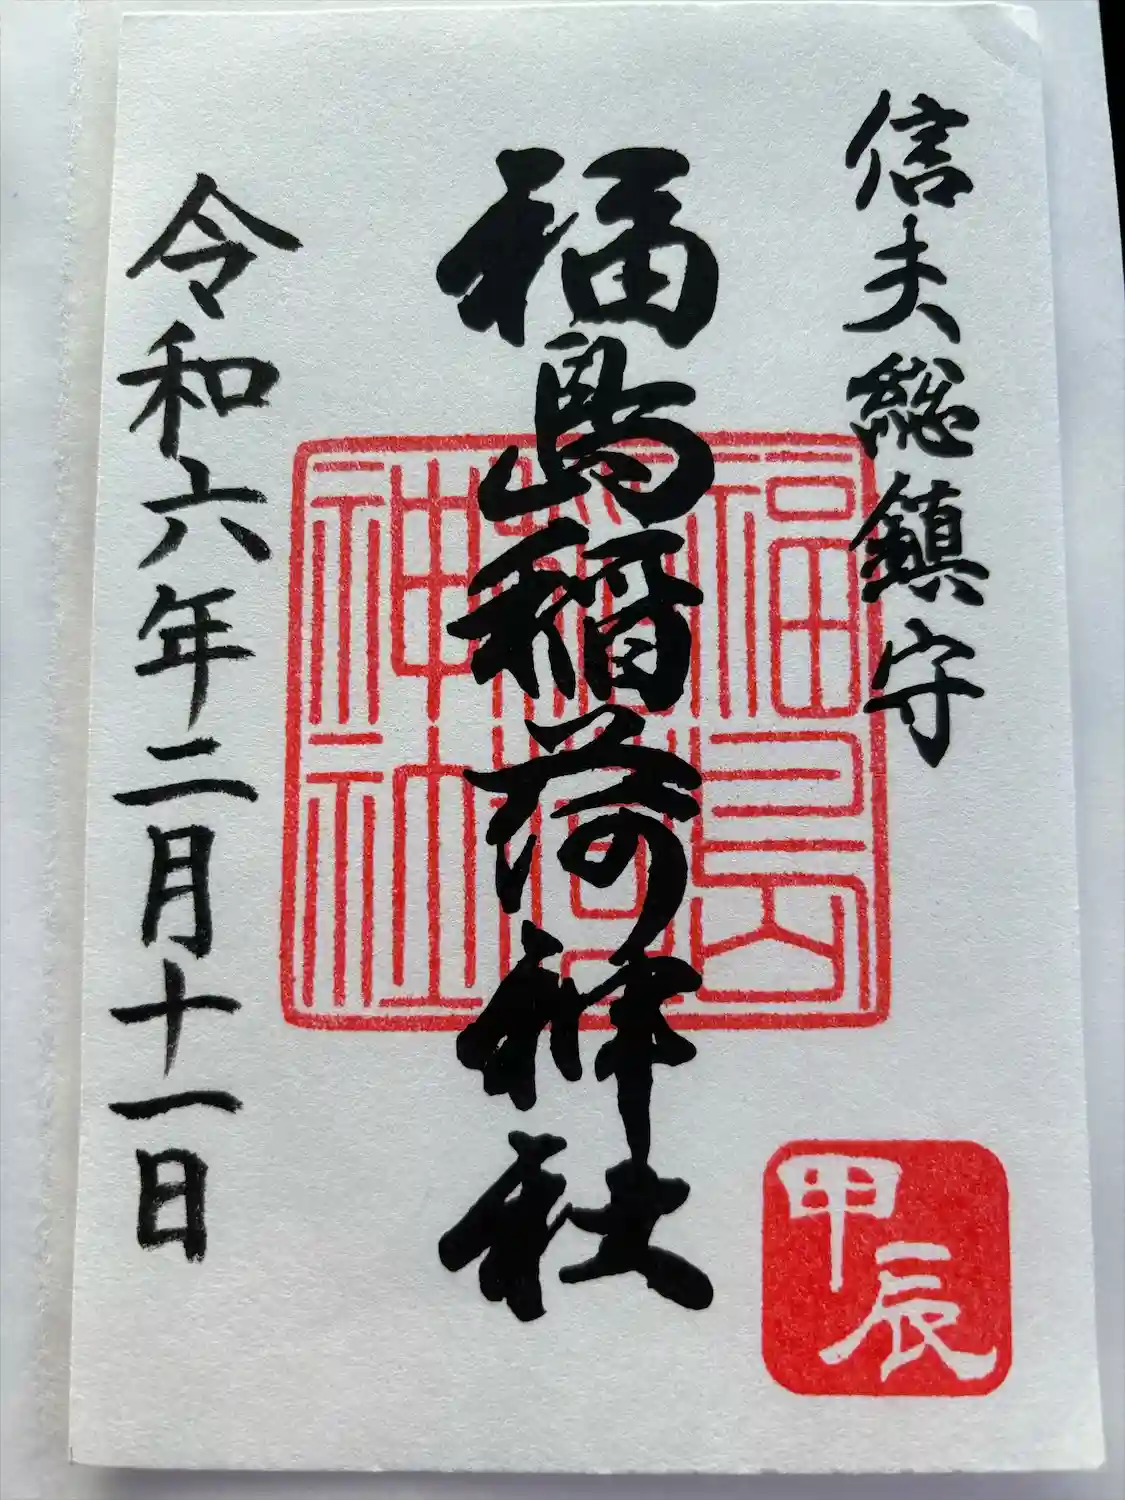 信夫総鎮守
福島稲荷神社
令和六年二月十一日
福島
稲荷
神社
甲辰